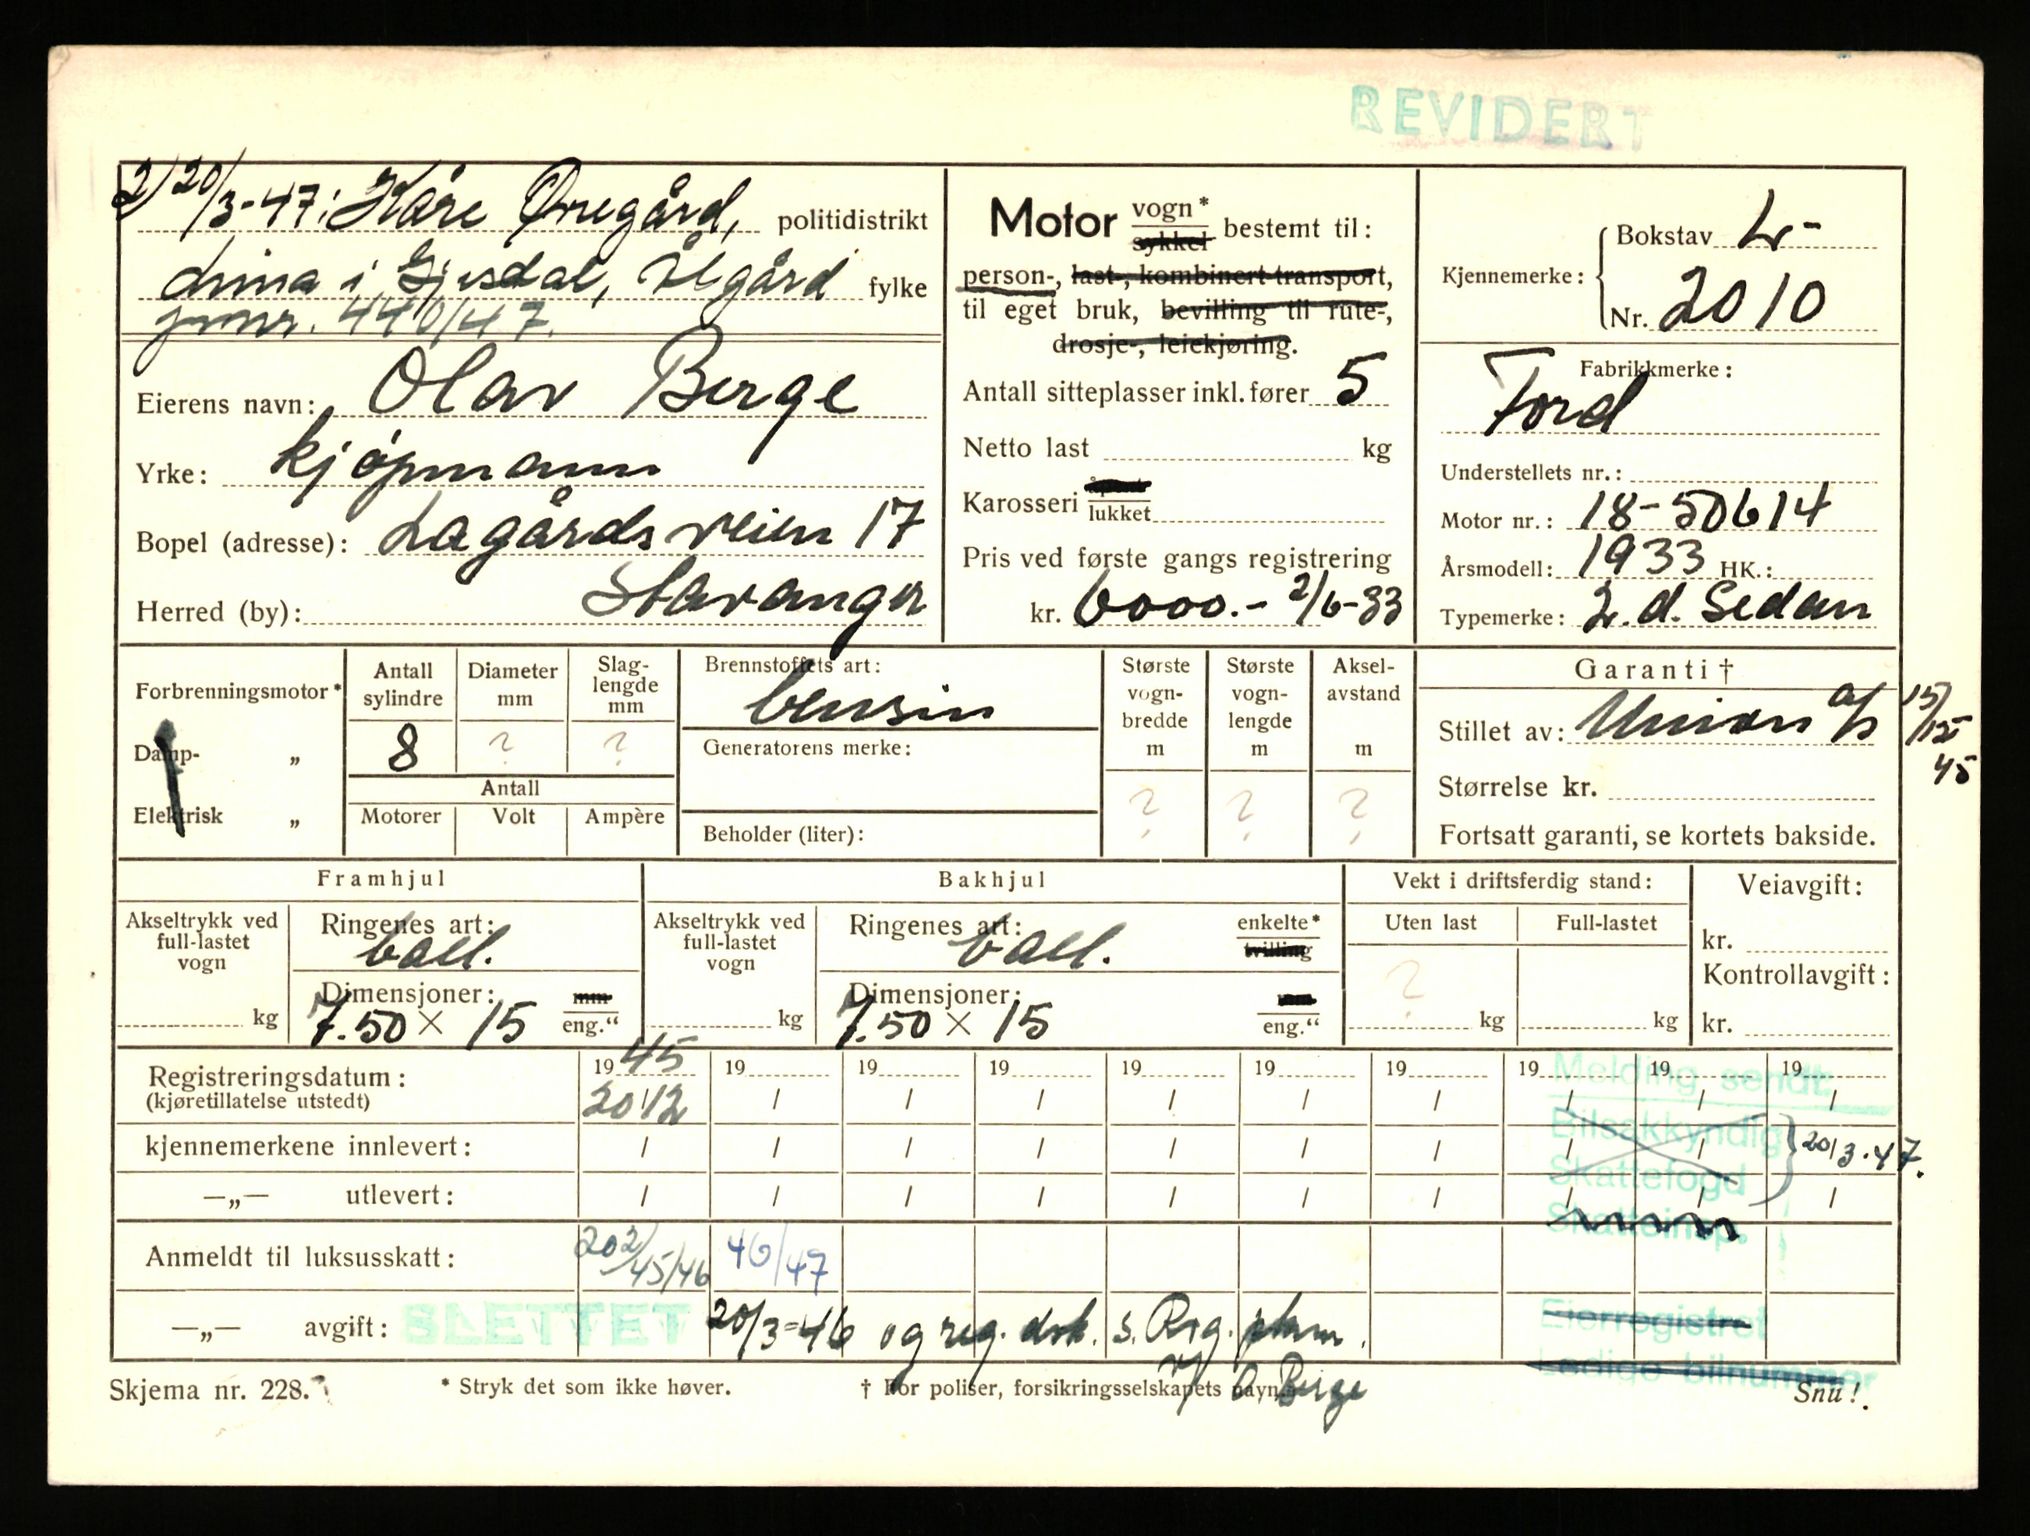 REVIDERT
2) 20/3-47: Kåre Ørregård, politidistrikt
i Gjesdal, Ålgård fylke
jnr. 440/47.
Eierens navn: Olav Berge
Yrke: kjøpmann
Bopel (adresse): Lagårdsveien 17
Herred (by): Stavanger
Motor vogn* sykkel bestemt til:
person-, last-, kombinert transport,
til eget bruk, bevilling til rute-,
drosje-, leiekjøring.
Antall sitteplasser inkl. fører 5
Netto last kg
Karosseri åpent lukket
Pris ved første gangs registrering
kr. 6000.- 2/6-33
Kjennemerke: Bokstav L-
Nr. 2010
Fabrikkmerke:
Ford
Understellets nr.:
Motor nr.: 18-50614
Årsmodell: 1933 HK.:
Typemerke: 2. d. Sedan
Forbrenningsmotor*
Damp- „
Elektrisk „
Antall sylindre
8
Diameter mm
?
Slag-
lengde
mm
?
Antall
Motorer Volt Ampère
Brennstoffets art:
bensin
Generatorens merke:
Beholder (liter):
Største
vogn-
bredde
m
?
Største
vogn-
lengde
m
?
Aksel-
avstand
m
?
Garanti †
Stillet av: Union a/s 15/12 45
Størrelse kr.
Fortsatt garanti, se kortets bakside.
Framhjul
Akseltrykk ved
full-lastet
vogn
kg
Ringenes art:
ball.
Dimensjoner:
7.50 × 15 mm eng.“
Bakhjul
Akseltrykk ved
full-lastet
vogn
kg
Ringenes art: enkelte*
ball. tvilling
Dimensjoner:
7.50 × 15 mm eng.“
Vekt i driftsferdig stand:
Uten last Full-lastet
?
kg kg
Veiavgift:
kr.
Kontrollavgift:
kr.
Registreringsdatum: 1945 19 19 19 19 19 19 19 19 19
(kjøretillatelse utstedt) 20/12 / / / / / / / / /
kjennemerkene innlevert: / / / / / / / / / /
—„— utlevert: / / / / / / / / / /
Melding sendt:
Bilsakkyndig
Skattefogd
Skatteinsp.
20/3.47.
Anmeldt til luksusskatt: 45/46 46/47
—„— avgift: SLETTET 20/3=46 og reg. dok. s. Reg.
Eierregistret
Ledige bilnummer
v/ O. Berge
Skjema nr. 228. * Stryk det som ikke høver. † For poliser, forsikringsselskapets navn. Snu!